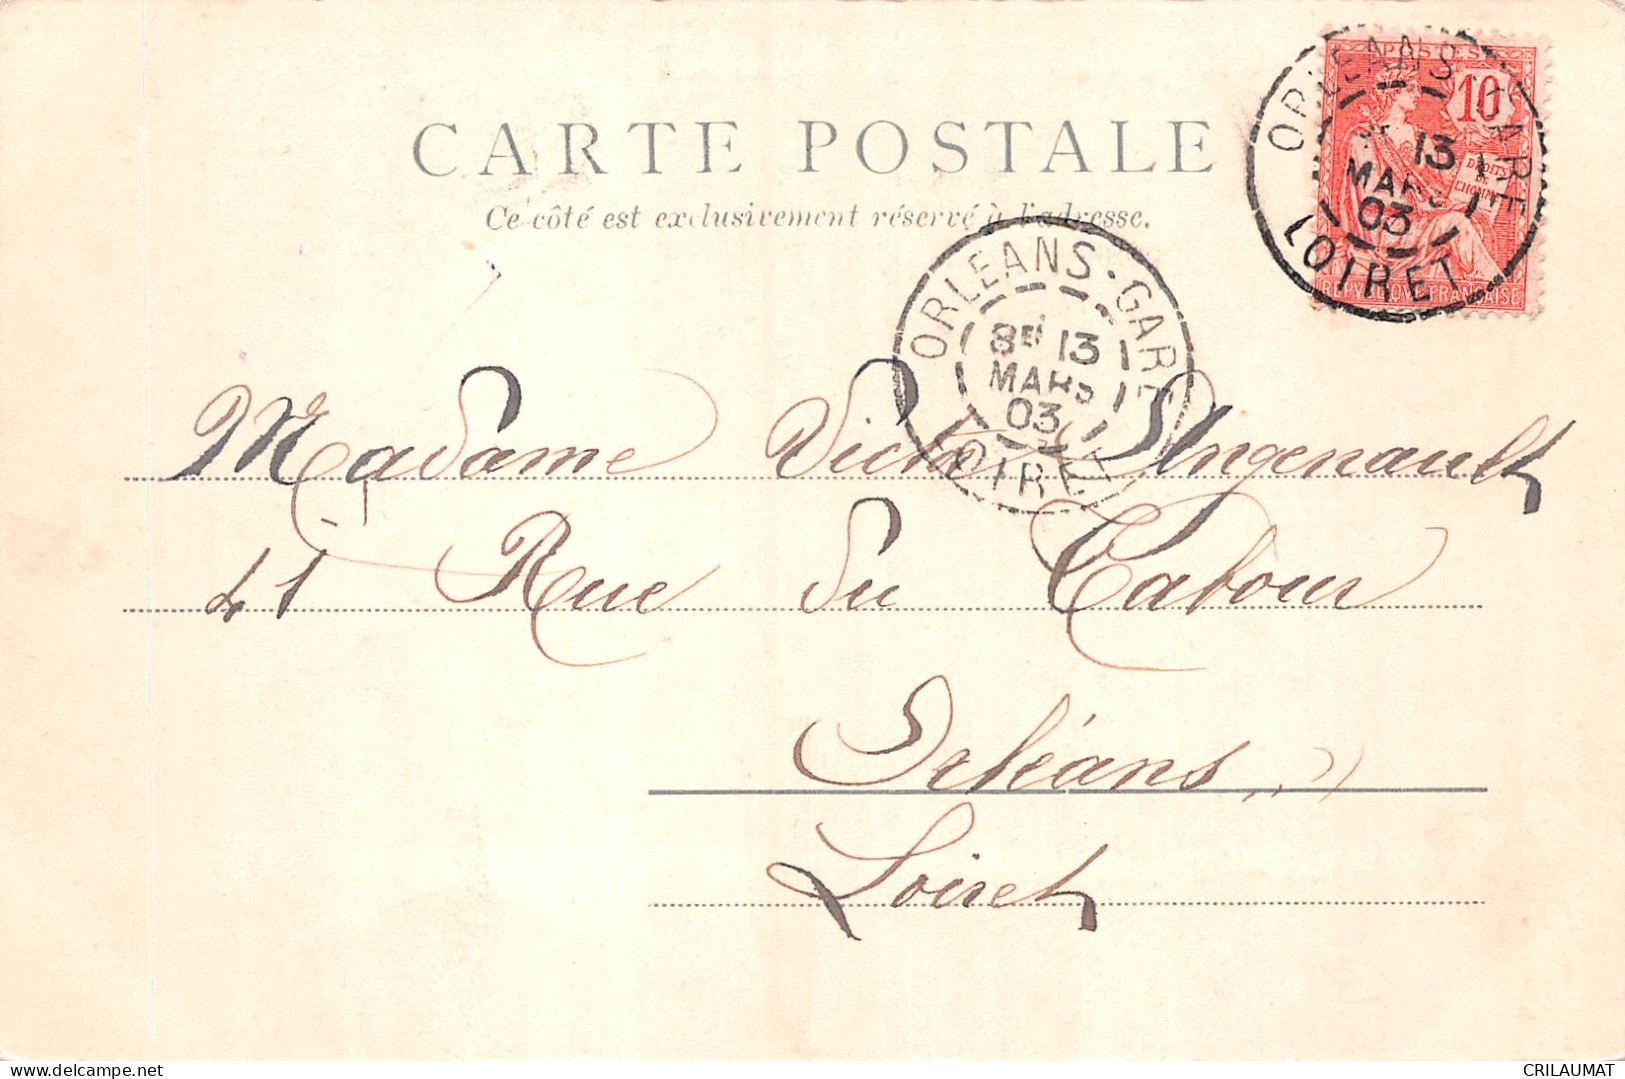 CARTE POSTALE
Ce côté est exclusivement réservé à l'adresse.
POSTES
10
DROITS DE L'HOMME
REPVBLIQVE FRANÇAISE
ORLEANS-GARE
13
MARS
03
LOIRET
ORLEANS-GARE
8E 13
MARS
03
LOIRET
Madame Victor Angenault
41 Rue du Tabour
Orléans
Loiret
delcampe.net
CRILAUMAT